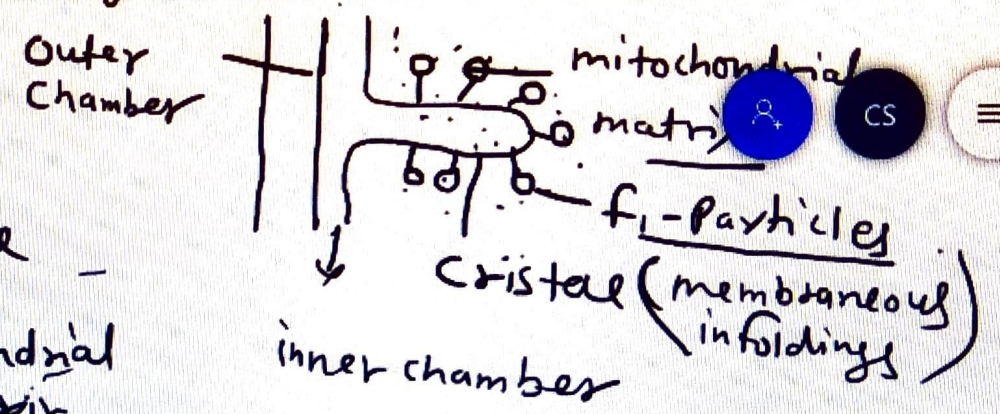 Outer
Chamber
mitochondrial
matrix
CS
f1-Particles
Cristae (membraneous
infoldings)
inner chamber
ndrial